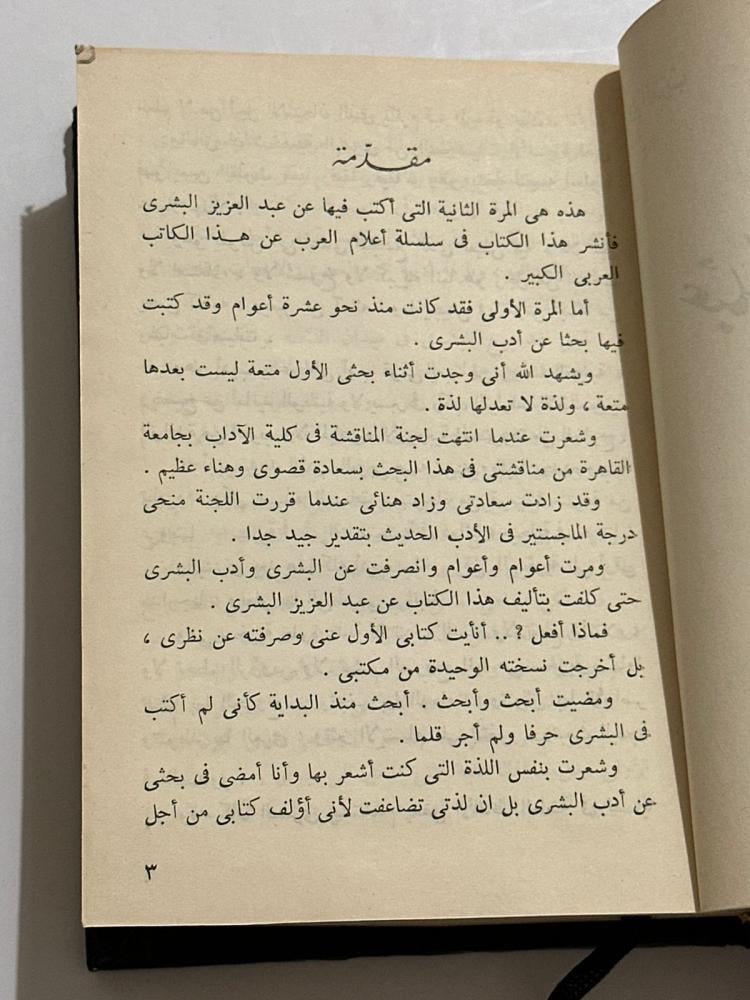 مقدّمة
هذه هى المرة الثانية التى أكتب فيها عن عبد العزيز البشرى
فأنشر هذا الكتاب فى سلسلة أعلام العرب عن هذا الكاتب
العربى الكبير .
أما المرة الأولى فقد كانت منذ نحو عشرة أعوام وقد كتبت
فيها بحثا عن أدب البشرى .
ويشهد الله أنى وجدت أثناء بحثى الأول متعة ليست بعدها
متعة ، ولذة لا تعدلها لذة .
وشعرت عندما انتهت لجنة المناقشة فى كلية الآداب بجامعة
القاهرة من مناقشتى فى هذا البحث بسعادة قصوى وهناء عظيم .
وقد زادت سعادتى وزاد هنائى عندما قررت اللجنة منحى
درجة الماجستير فى الأدب الحديث بتقدير جيد جدا .
ومرت أعوام وأعوام وانصرفت عن البشرى وأدب البشرى
حتى كلفت بتأليف هذا الكتاب عن عبد العزيز البشرى .
فماذا أفعل ؟ .. أنأيت كتابى الأول عنى وصرفته عن نظرى ،
بل أخرجت نسخته الوحيدة من مكتبى .
ومضيت أبحث وأبحث . أبحث منذ البداية كأنى لم أكتب
فى البشرى حرفا ولم أجر قلما .
وشعرت بنفس اللذة التى كنت أشعر بها وأنا أمضى فى بحثى
عن أدب البشرى بل ان لذتى تضاعفت لأنى أؤلف كتابى من أجل
٣